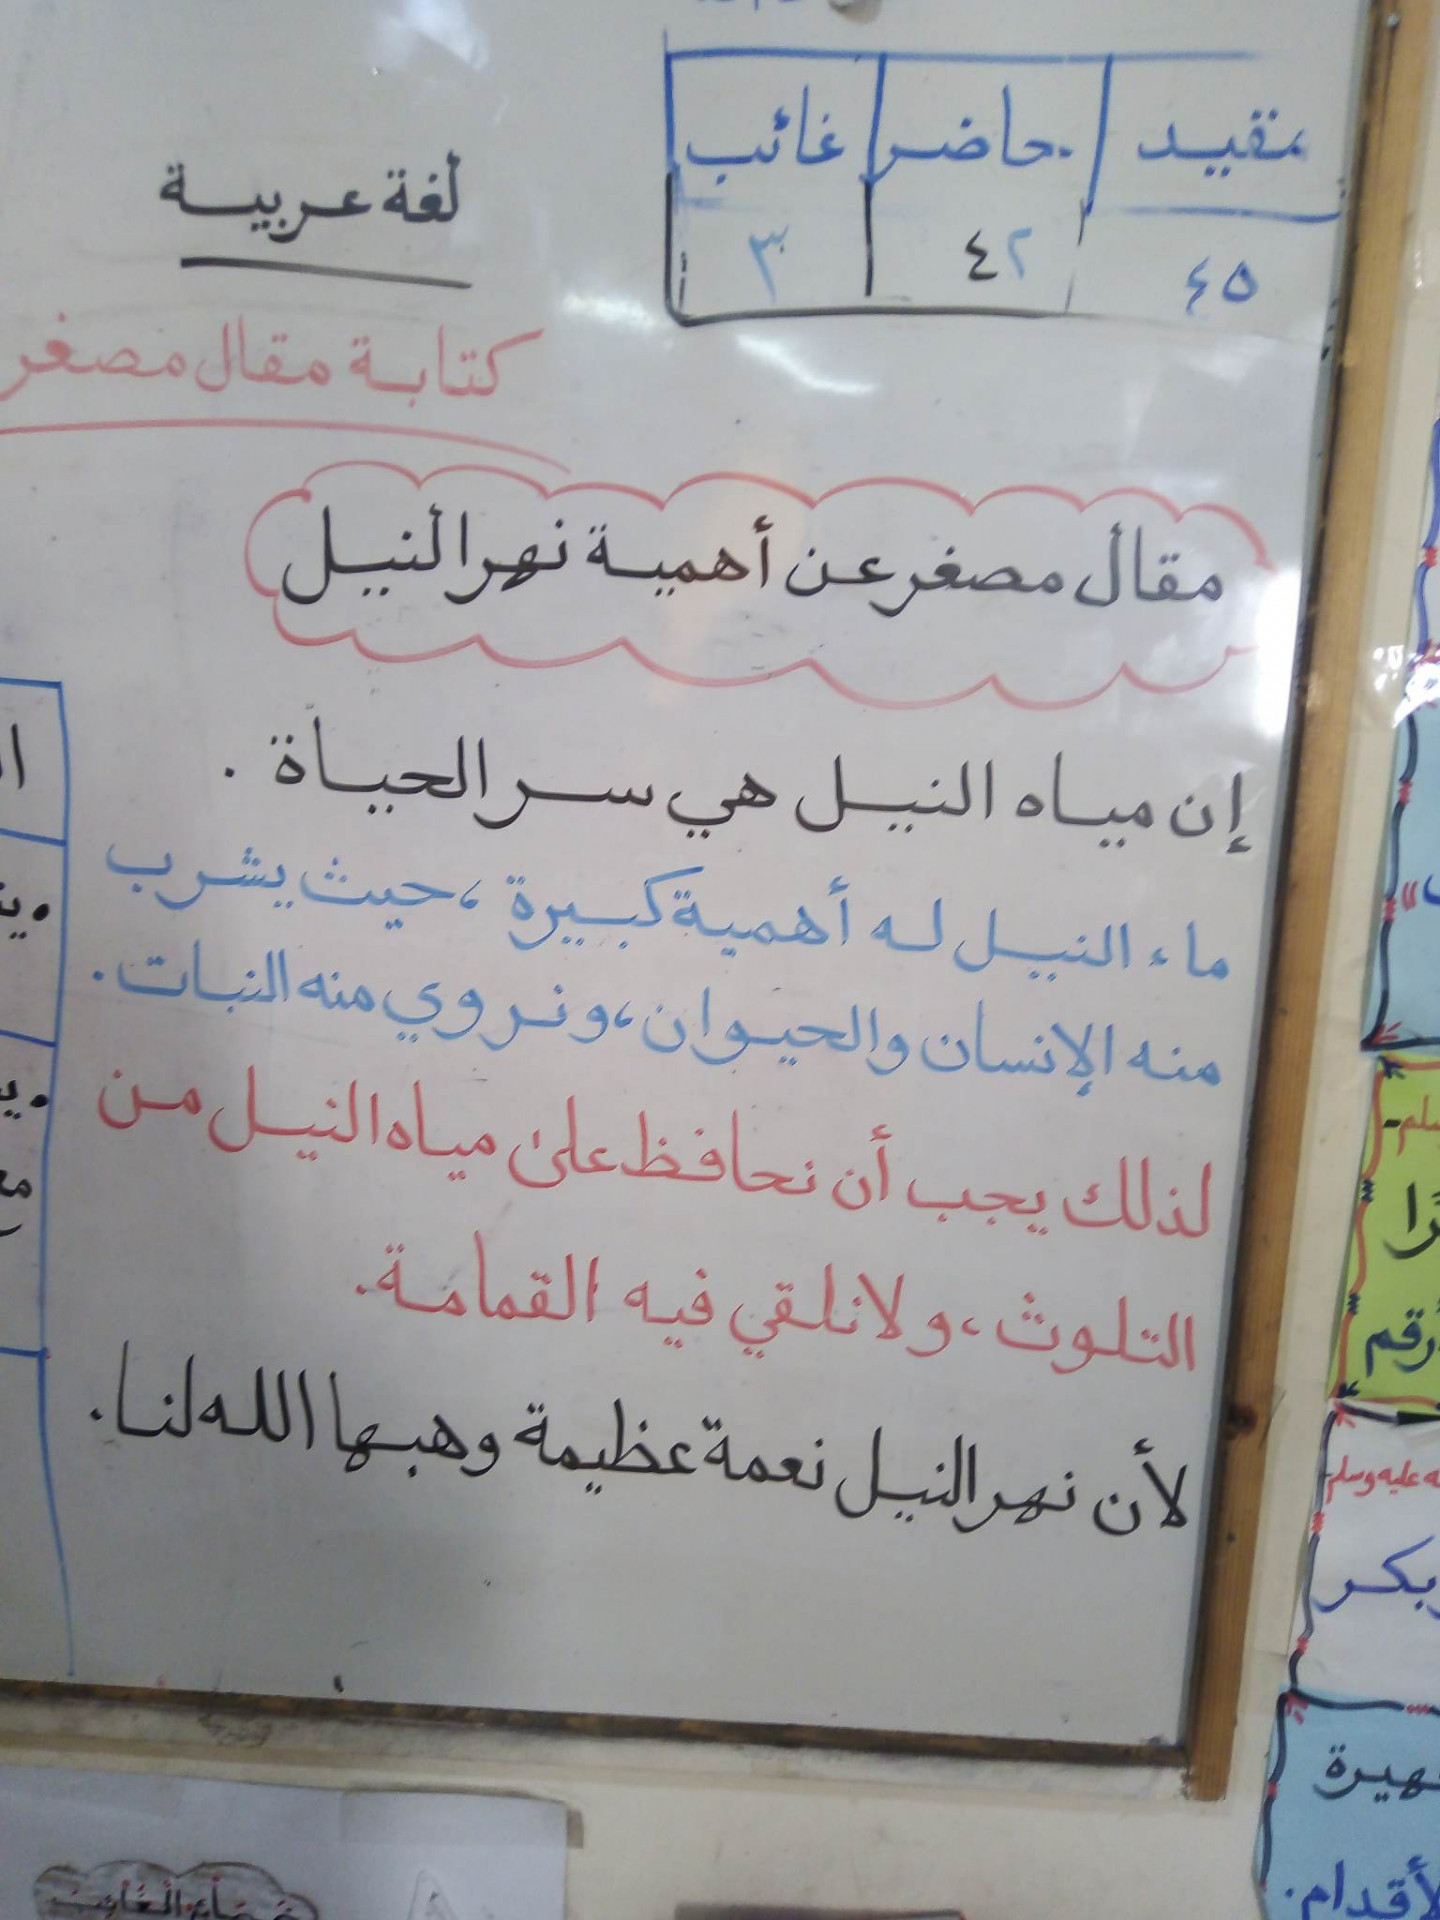 مقيد حاضر غائب
٤٥ ٤٢ ٣
لغة عربية
كتابة مقال مصغر
مقال مصغر عن أهمية نهر النيل
إن مياه النيل هي سر الحياة .
ماء النيل له أهمية كبيرة ، حيث يشرب
منه الإنسان والحيوان، ونروي منه النبات.
لذلك يجب أن نحافظ على مياه النيل من
التلوث، ولا نلقي فيه القمامة.
لأن نهر النيل نعمة عظيمة وهبها الله لنا.
أقدام.